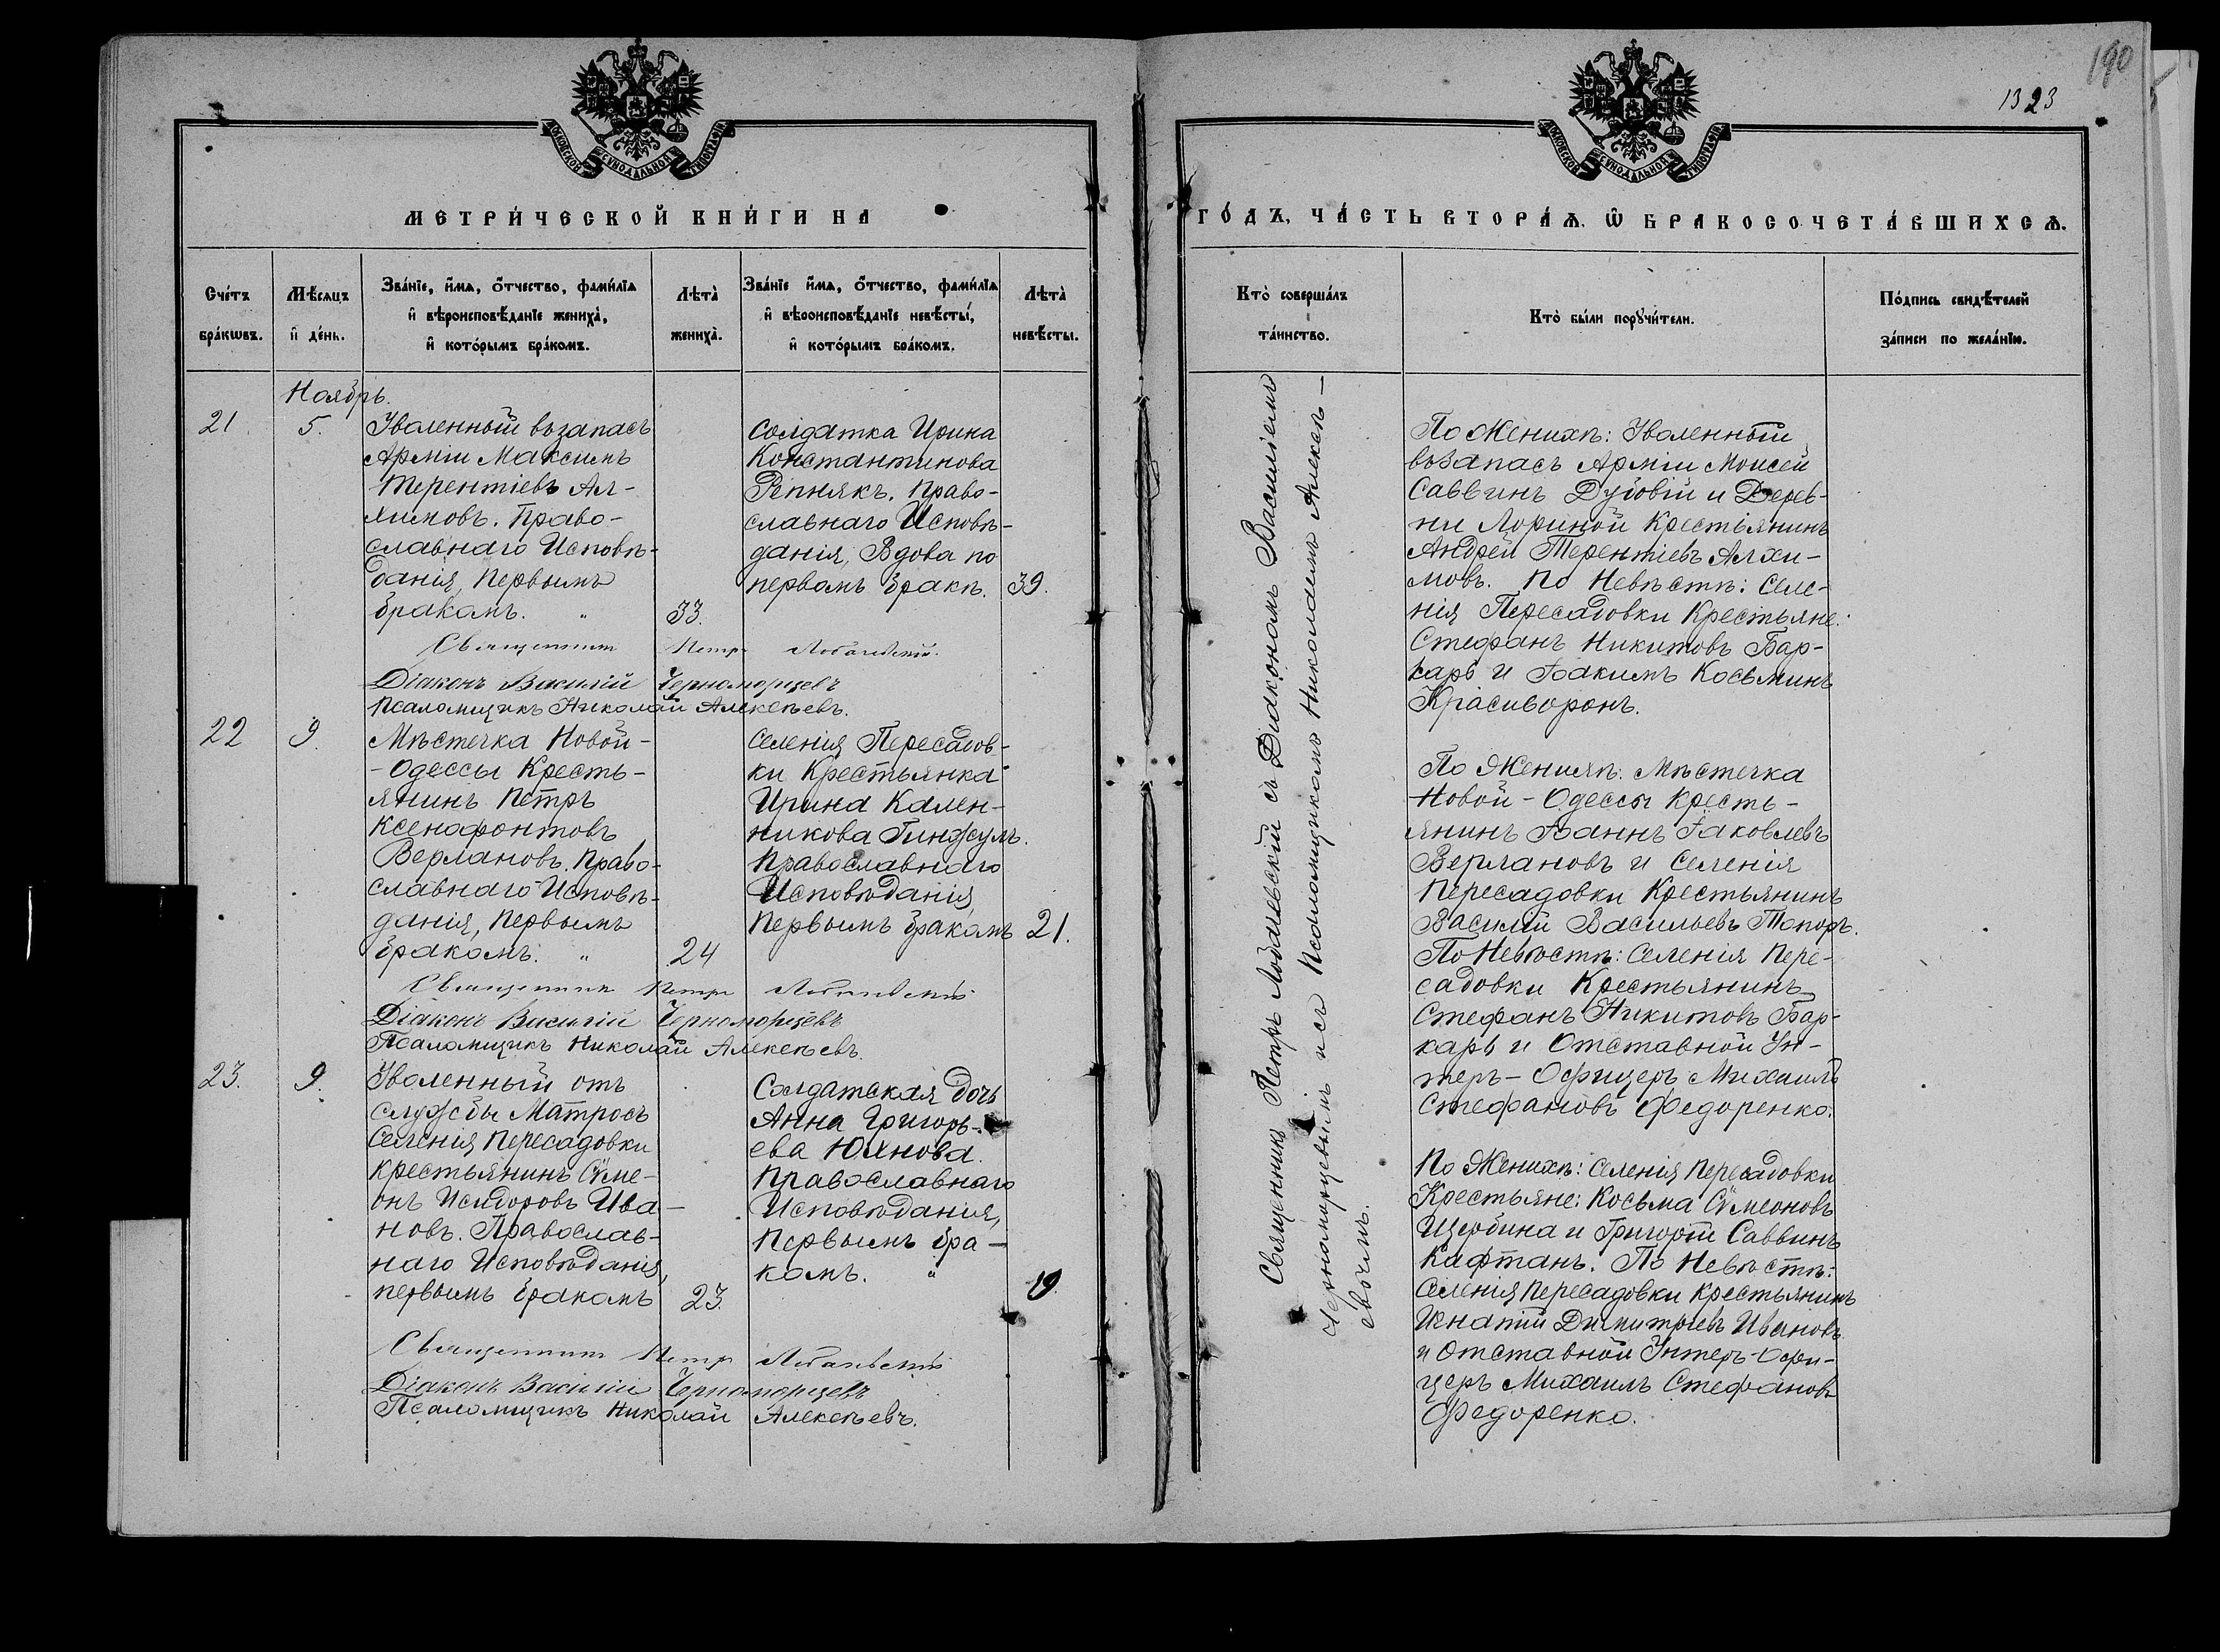 190
1323
МОСКОВСКОЙ СѴНОДАЛЬНОЙ ТИПОГРАФІИ
МОСКОВСКОЙ СѴНОДАЛЬНОЙ ТИПОГРАФІИ
МЕТРИ́ЧЕСКОЙ КНИ́ГИ НА
ГО́ДЪ, ЧА́СТЬ ВТОРА́Ѧ, Ѿ БРАКОСОЧЕТА́ВШИХСѦ.
Сче́тъ
бра́кѡвъ.
Мѣ́сяцъ
и҆ де́нь.
Зва́нїе, и҆́мѧ, ѻ҆́тчество, фами́лїѧ
и҆ вѣроисповѣ́данїе жениха̀,
и҆ кото́рымъ бра́комъ.
Лѣта̀
жениха̀.
Зва́нїе и҆́мѧ, ѻ҆́тчество, фами́лїѧ
и҆ вѣроисповѣ́данїе невѣ́сты,
и҆ кото́рымъ бра́комъ.
Лѣта̀
невѣ́сты.
Кто̀ соверша́лъ
та́инство.
Кто̀ бы́ли порꙋчи́тели.
По́дпись свидѣ́телей
за́писи по жела́нїю.
Ноябрь.
21
5.
Уволенный въ запасъ
Арміи Максимъ
Терентіевъ Ал-
химовъ. Право-
славнаго Исповѣ-
данія, Первымъ
бракомъ. „
33.
Солдатка Ирина
Константинова
Рѣпнякъ. Право-
славнаго Исповѣ-
данія, Вдова по
первомъ бракѣ.
39.
Священникъ Петръ Лобачевскій
Діаконъ Василій Черноморцевъ
Псаломщикъ Николай Алексѣевъ.
22
9.
Мѣстечка Новой-
-Одессы Кресть-
янинъ Петръ
Ксенофонтовъ
Верлановъ. Право-
славнаго Исповѣ-
данія, Первымъ
бракомъ. „
24
Селенія Пересадов-
ки Крестьянка
Ирина Калин-
никова Гинфулъ.
Православнаго
Исповѣданія,
Первымъ бракомъ
21.
Священникъ Петръ Лобачевскій
Діаконъ Василій Черноморцевъ
Псаломщикъ Николай Алексѣевъ.
23.
9.
Уволенный отъ
службы Матросъ
Селенія Пересадовки
Крестьянинъ Сѵме-
онъ Исидоровъ Ива-
новъ. Православ-
наго Исповѣданія,
первымъ бракомъ
23.
Солдатская дочь
Анна Григорь-
ева Юянова.
Православнаго
Исповѣданія,
Первымъ бра-
комъ. „
19.
Священникъ Петръ Лобачевскій
Діаконъ Василій Черноморцевъ
Псаломщикъ Николай Алексѣевъ.
Священникъ Петръ Лобачевскій съ Діакономъ Василіемъ
Черноморцевымъ и съ Псаломщикомъ Николаемъ Алексѣ-
евымъ.
По Женихѣ: Уволенный
въ запасъ Арміи Моисей
Саввинъ и Дерев-
ни Лориной Крестьянинъ
Андрей Терентіевъ Алхи-
мовъ. По Невѣстѣ: Селе-
нія Пересадовки Крестьяне:
Стефанъ Никитовъ Бар-
карь и Іоакимъ Косьминъ
Красиворонъ.
По Женихѣ: Мѣстечка
Новой-Одессы Кресть-
янинъ Іоаннъ Іаковлевъ
Верлановъ и Селенія
Пересадовки Крестьянинъ
Василій Васильевъ Топоръ.
По Невѣстѣ: Селенія Пере-
садовки Крестьянинъ
Стефанъ Никитовъ Бар-
карь и Отставной Ун-
теръ-Офицеръ Михаилъ
Стефановъ Федоренко.
По Женихѣ: Селенія Пересадовки
Крестьяне: Косьма Сѵмеоновъ
Щербина и Григорій Саввинъ
Кафтанъ. По Невѣстѣ:
Селенія Пересадовки Крестьянинъ
Игнатій Димитріевъ Ивановъ
и Отставной Унтеръ-Офи-
церъ Михаилъ Стефановъ
Федоренко.